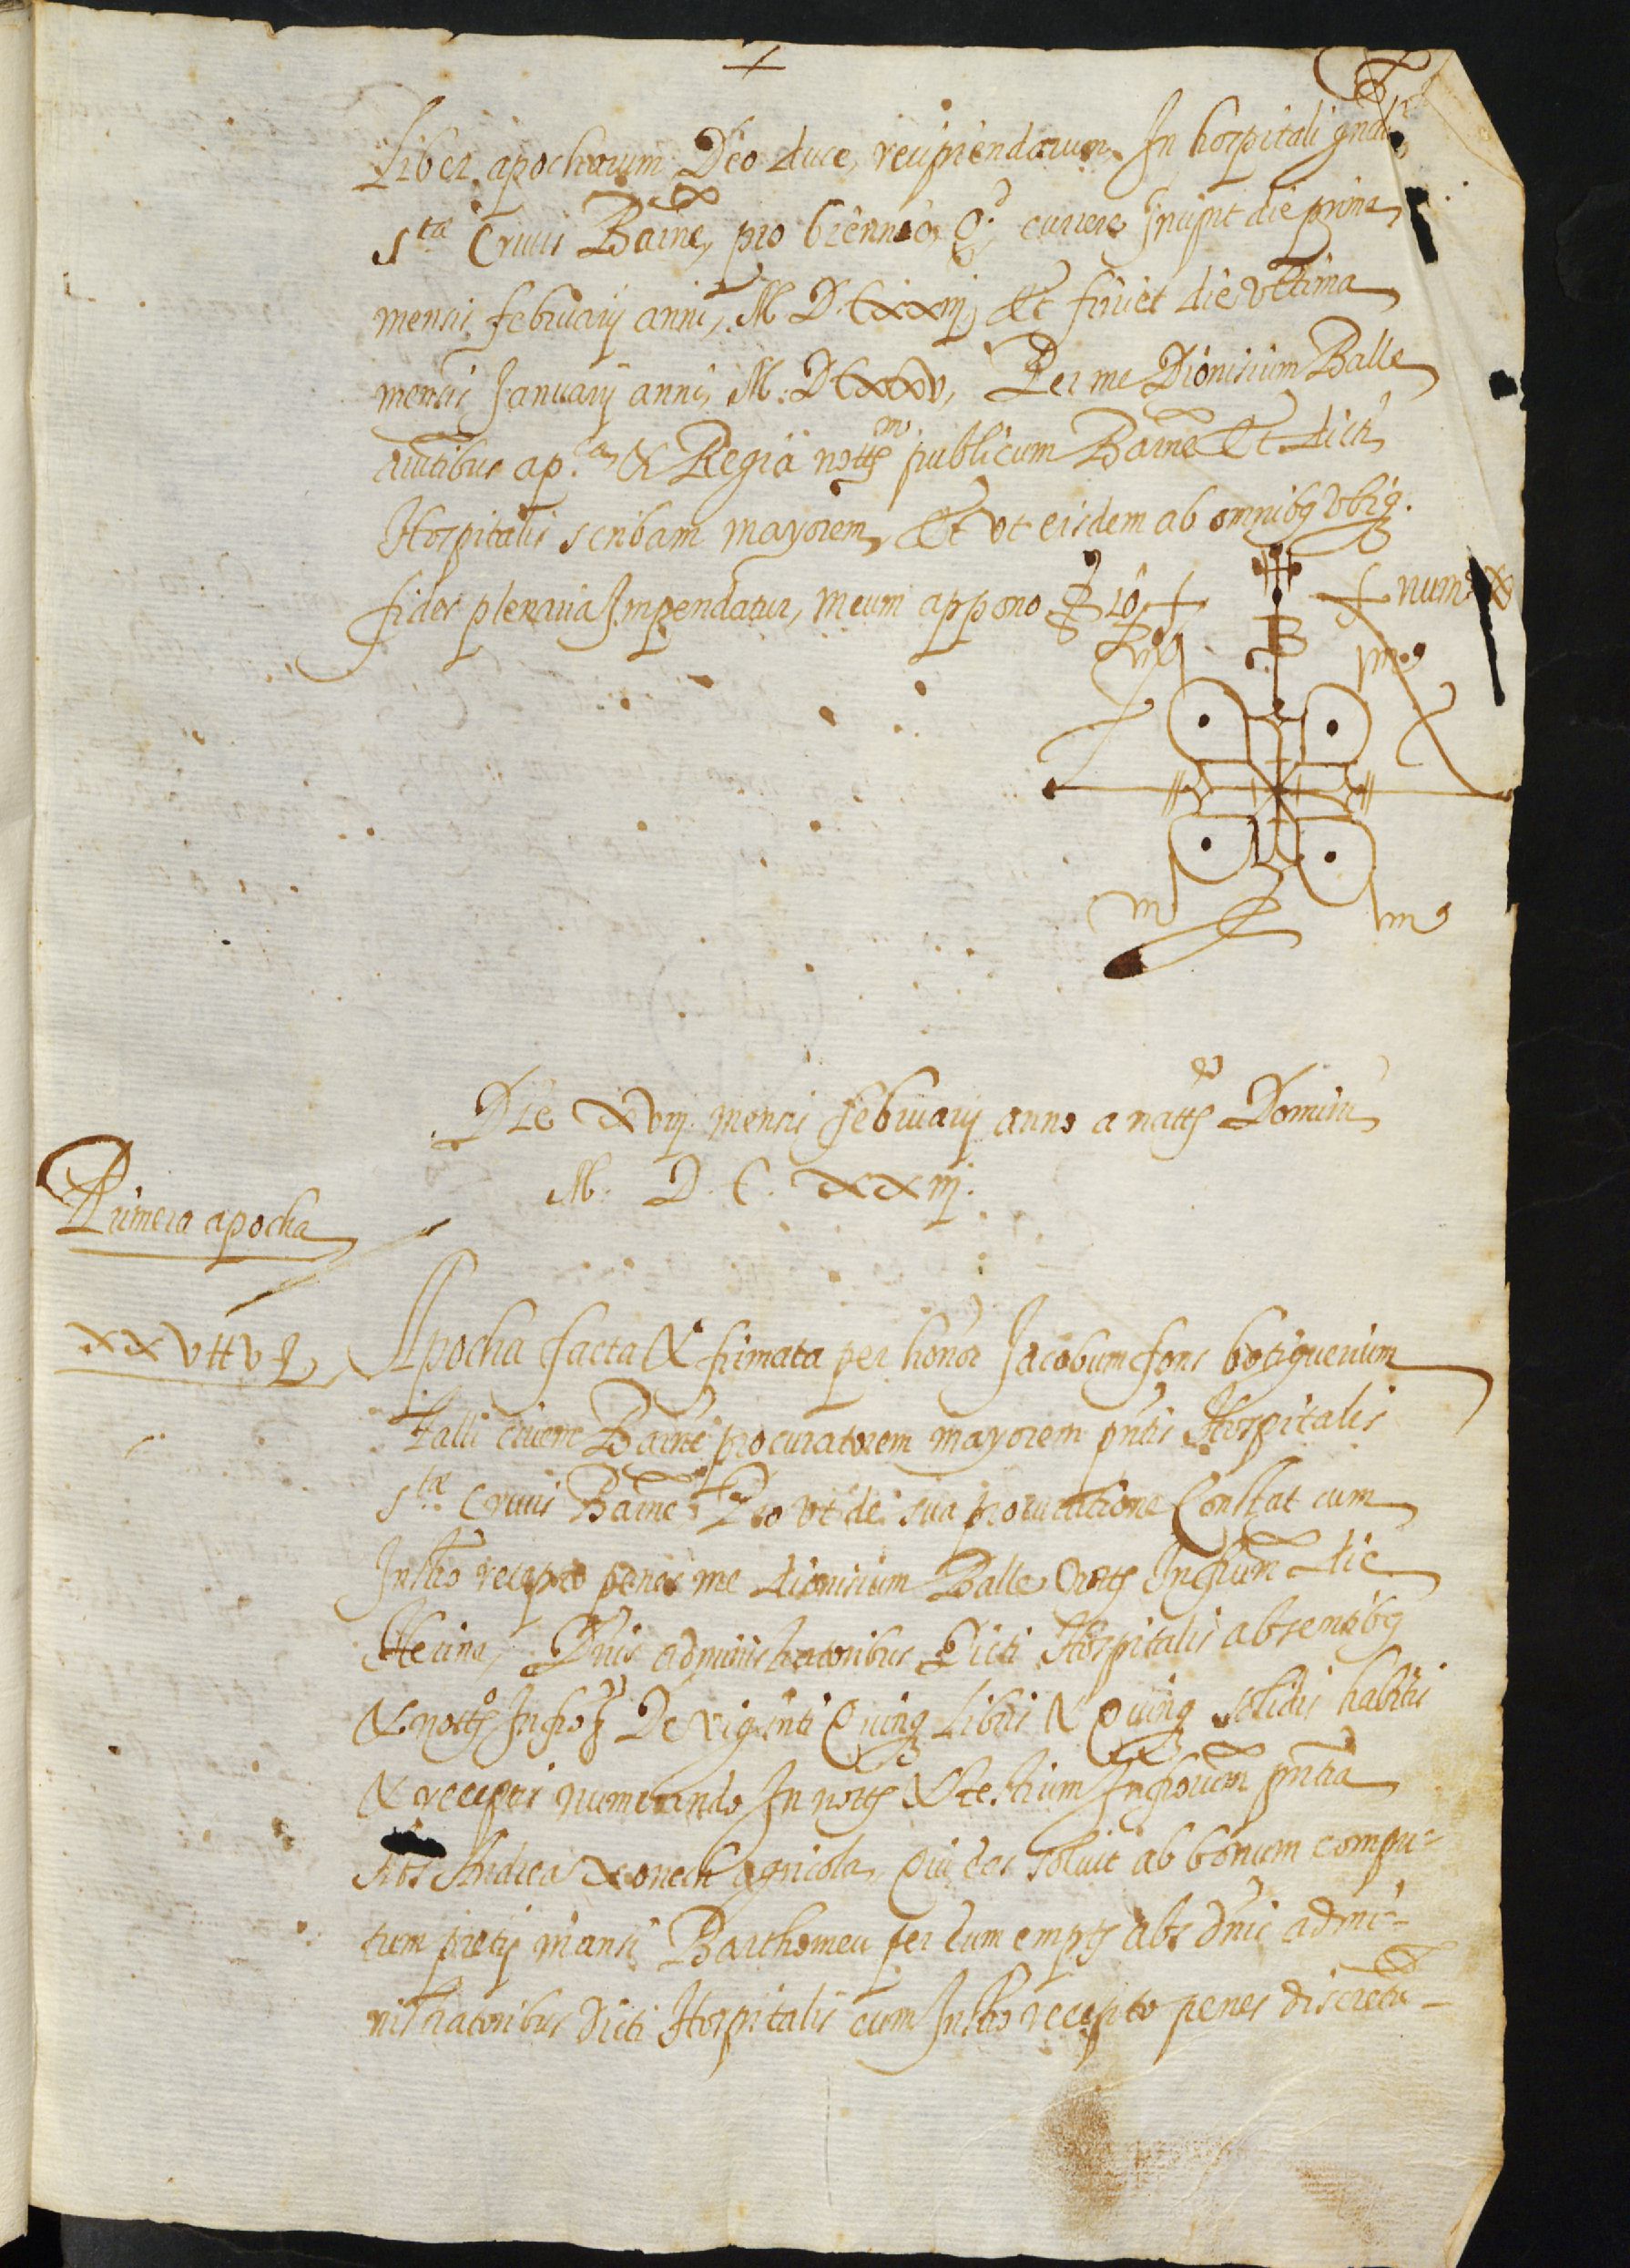 Liber apocharum Deo duce, recipiendarum In hospitali gnāli
Stæ Crucis Barne, pro biennio Qd currere Incipit die prima
mensis februarij anni, M. D. Cxxiij, Et finiet die vltima
mensis Januarij anni, M. D Cxxv, Per me Dionisium Balle
auctibus ap.cā & Regiā notm publicum Barne Et dicti
Hospitalis scribam mayorem, Et vt eisdem ab omnibq vbiq.
fides plenaria Impendatur, meum appono
Die xviij mensis februarij anno a natte Domini
M. D. C. xxiij.
Primera apocha
xxv ℔ v ſ
Apocha facta & firmata per honor Jacobum fons botiguerium
Talli civem Barne procuratorem mayorem pntis Hospitalis
Stæ Crucis Barne, Pro vt de sua procuratione Constat cum
Instro recepto penes me dionisium Balle nott Infrūm die
Dnis administratoribus Dicti Hospitalis absentibq
& notto De viginti Quinq Libris & Quinq solidis habitis
& receptis numerando In nott & testium Infrorum pntia
Abs Andrea agricola, Qui eas solvit ab bonum compu-
tum pretij mansi Barthomeu per eum empt abs dnis admi-
nistratoribus Dicti Hospitalis cum Instro recepto penes discretu-